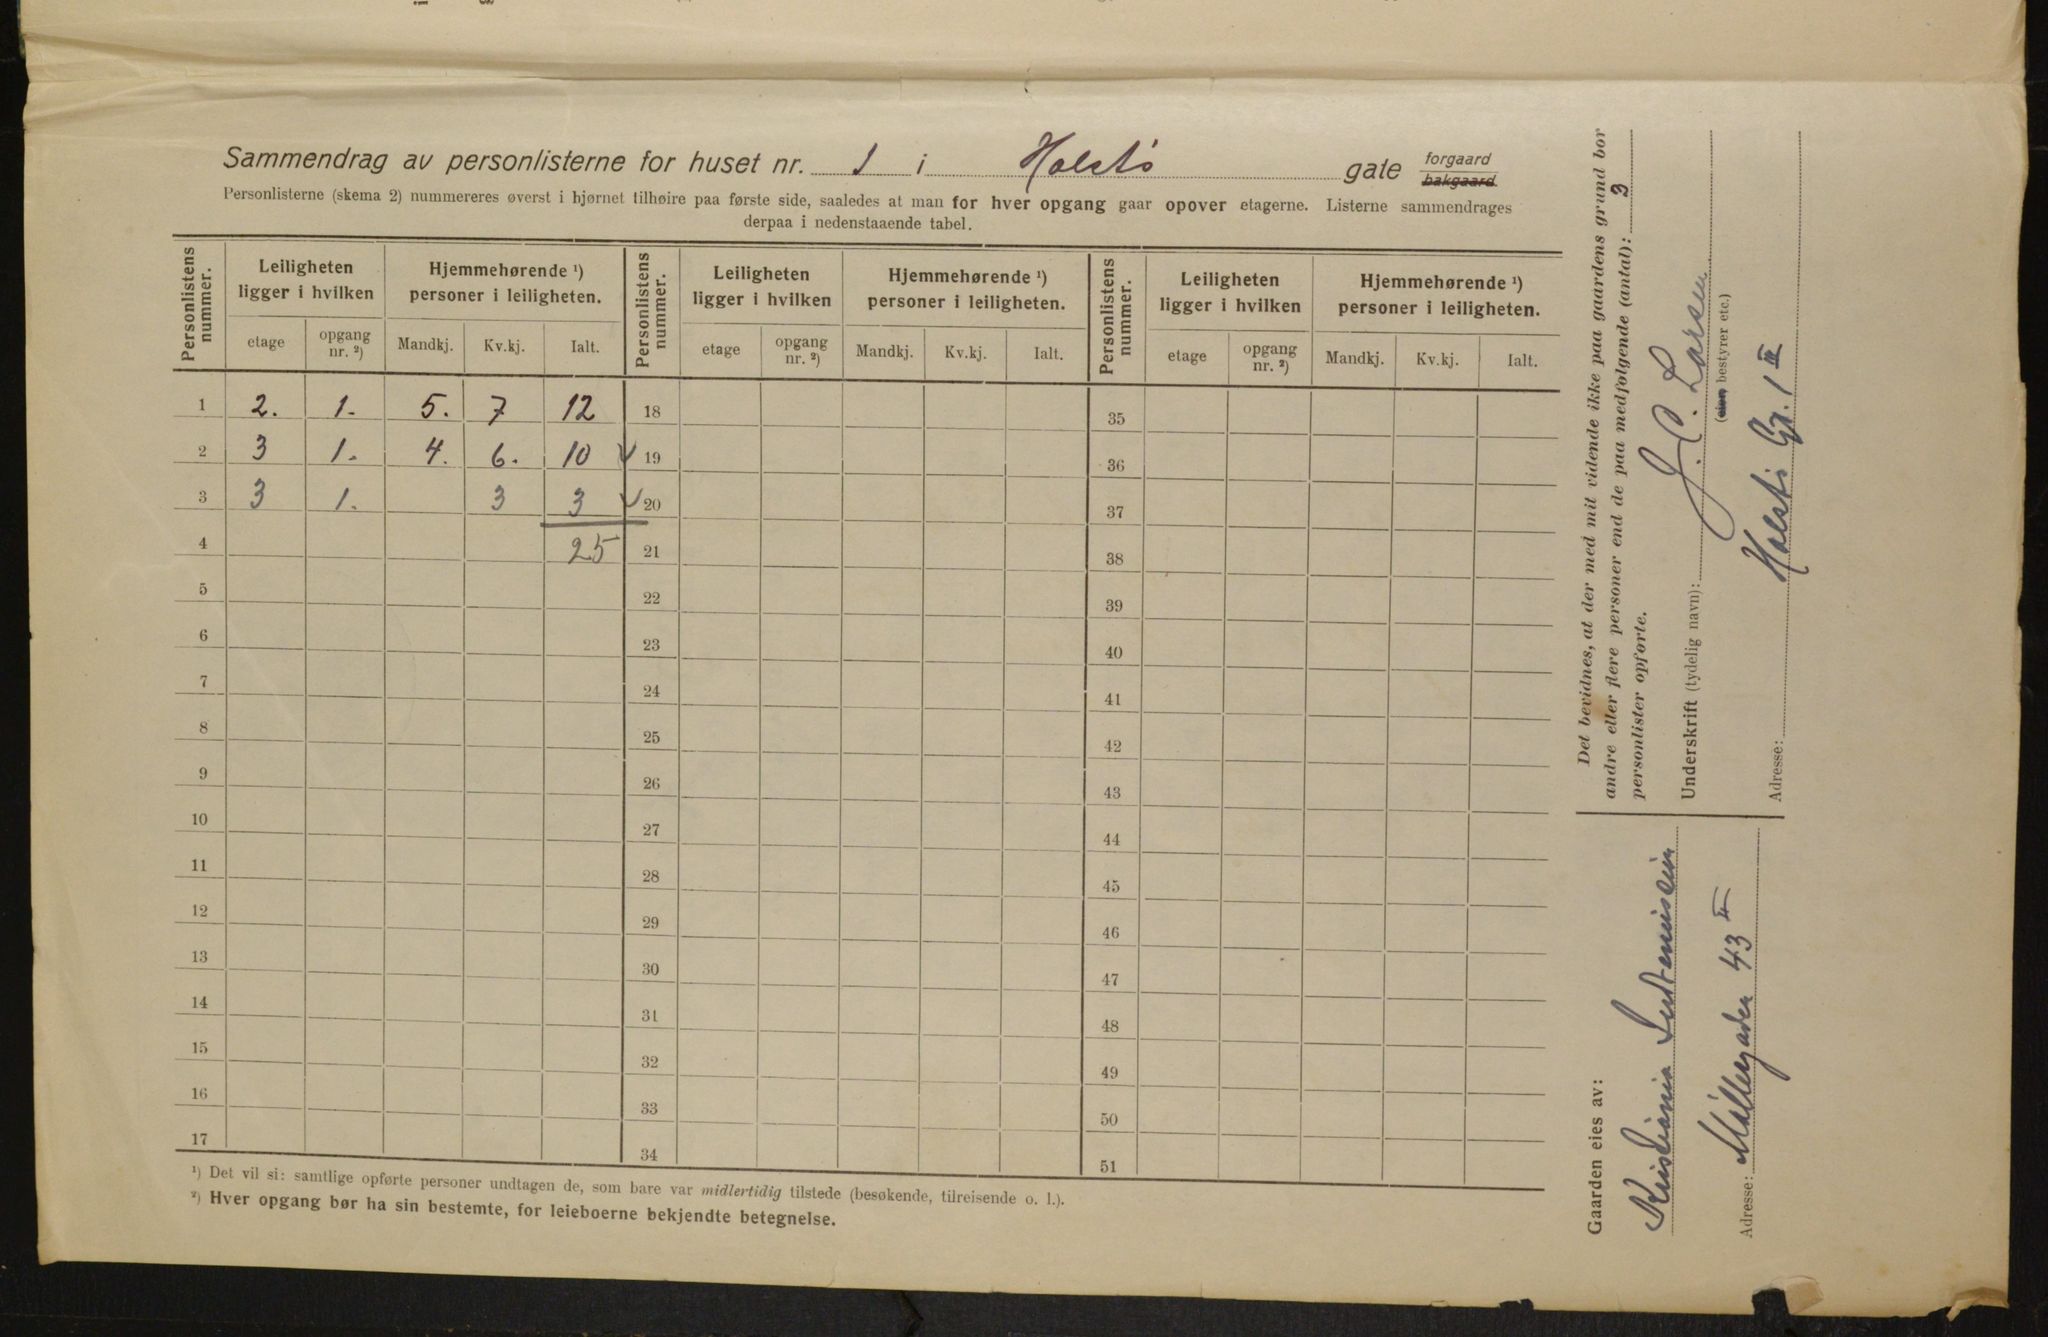 Sammendrag av personlisterne for huset nr. 1 i Holsts gate forgaard
bakgaard.
Personlisterne (skema 2) nummereres øverst i hjørnet tilhøire paa første side, saaledes at man for hver opgang gaar opover etagerne. Listerne sammendrages
derpaa i nedenstaaende tabel.
Personlistens nummer. Leiligheten ligger i hvilken Hjemmehørende ¹) personer i leiligheten. Personlistens nummer. Leiligheten ligger i hvilken Hjemmehørende ¹) personer i leiligheten. Personlistens nummer. Leiligheten ligger i hvilken Hjemmehørende ¹) personer i leiligheten.
etage opgang nr. ²) Mandkj. Kv.kj. Ialt. etage opgang nr. ²) Mandkj. Kv.kj. Ialt. etage opgang nr. ²) Mandkj. Kv.kj. Ialt.
1 2. 1. 5. 7 12 18 35
2 3 1. 4. 6. 10 19 36
3 3 1. 3 3 20 37
4 25 21 38
5 22 39
6 23 40
7 24 41
8 25 42
9 26 43
10 27 44
11 28 45
12 29 46
13 30 47
14 31 48
15 32 49
16 33 50
17 34 51
¹) Det vil si: samtlige opførte personer undtagen de, som bare var midlertidig tilstede (besøkende, tilreisende o. l.).
²) Hver opgang bør ha sin bestemte, for leieboerne bekjendte betegnelse.
Det bevidnes, at der med mit vidende ikke paa gaardens grund bor
andre eller flere personer end de paa medfølgende (antal): 3
personlister opførte.
Underskrift (tydelig navn): J. C. Larsen
(eier, bestyrer etc.)
Adresse: Holsts Gt. 1 III
Gaarden eies av:
Kristiania
Adresse: Møllergaden 43 II